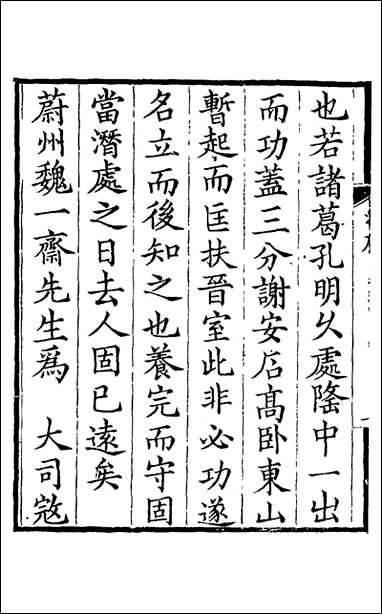 也若諸葛孔明久處隆中一出
而功蓋三分謝安石髙卧東山
暫起而匡扶晉室此非必功遂
名立而後知之也養完而守固
當潛處之日去人固已遠矣
蔚州魏一齋先生爲　大司宼